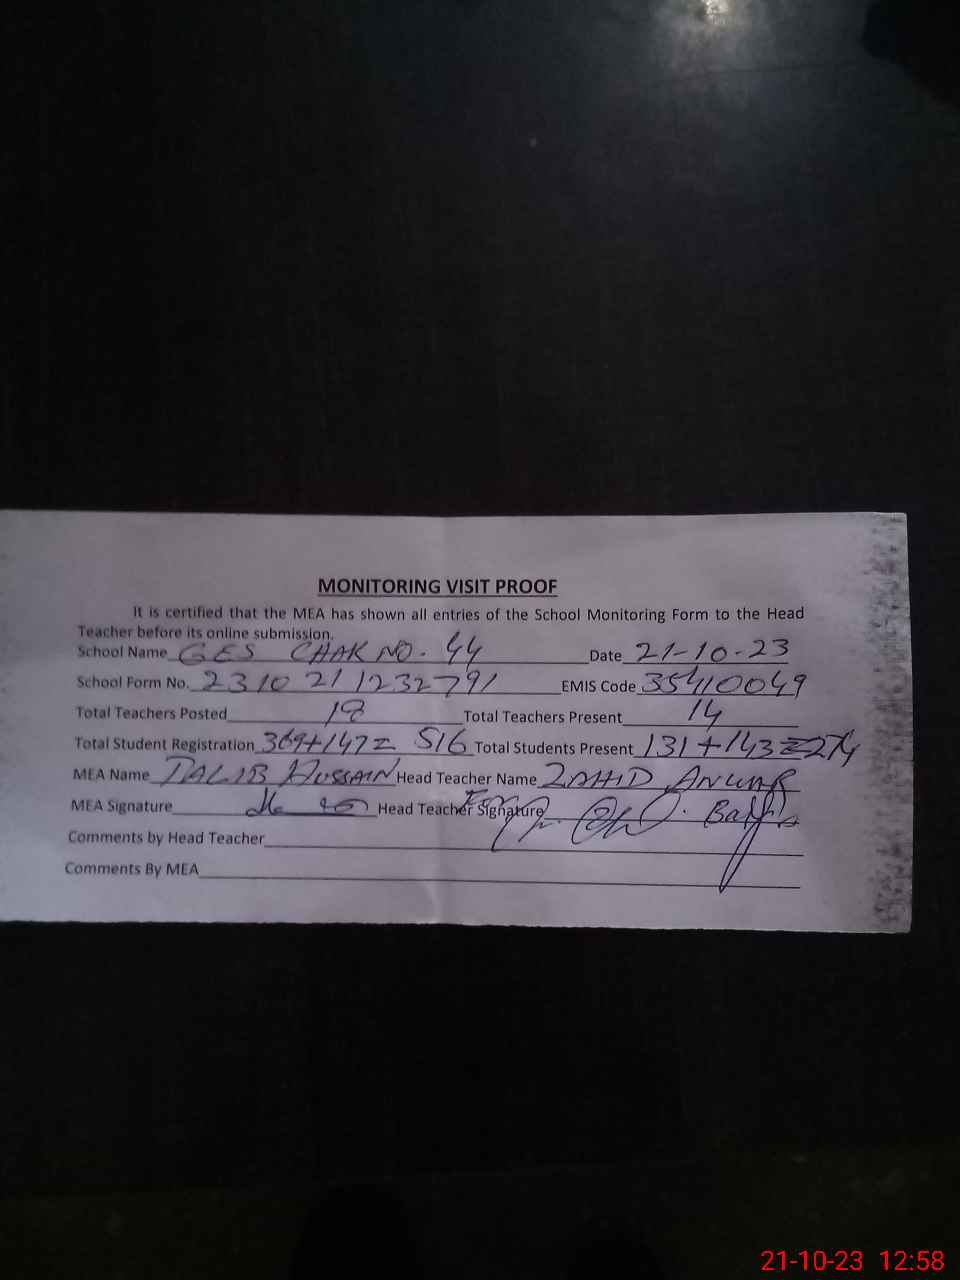 MONITORING VISIT PROOF
It is certified that the MEA has shown all entries of the School Monitoring Form to the Head
Teacher before its online submission.
School Name GES CHAK NO. 44 Date 21-10-23
School Form No. 2310211232791 EMIS Code 35410049
Total Teachers Posted 18 Total Teachers Present 14
Total Student Registration 369+147= 516 Total Students Present 131+143=274
MEA Name TALIB HUSSAIN Head Teacher Name ZAHID ANWAR
MEA Signature Head Teacher Signature
Comments by Head Teacher
Comments By MEA
21-10-23 12:58